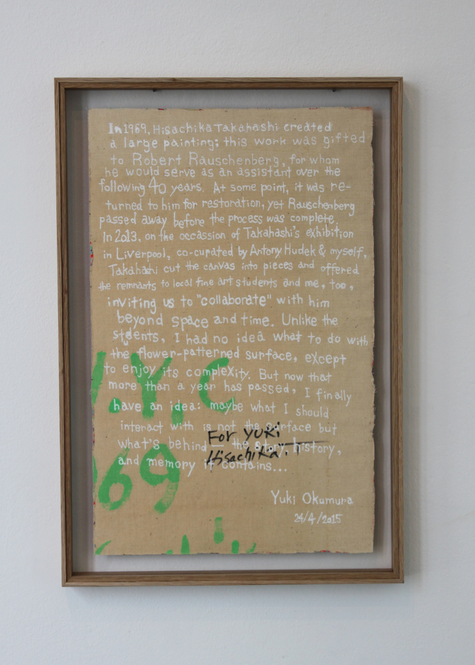 In 1969, Hisachika Takahashi created
a large painting; this work was gifted
to Robert Rauschenberg, for whom
he would serve as an assistant over the
following 40 years. At some point, it was re-
turned to him for restoration, yet Rauschenberg
passed away before the process was complete.
In 2013, on the occassion of Takahashi's exhibition
in Liverpool, co-curated by Antony Hudek & myself,
Takahashi cut the canvas into pieces and offered
the remnants to local fine art students and me, too,
inviting us to "collaborate" with him
beyond space and time. Unlike the
students, I had no idea what to do with
the flower-patterned surface, except
to enjoy its complexity. But now that
more than a year has passed, I finally
have an idea: maybe what I should
interact with is not the surface but
what's behind — the story, history,
and memory it contains...
N.Y.C
69
For YUKi
Hisachika. T
Yuki Okumura
24/4/2015